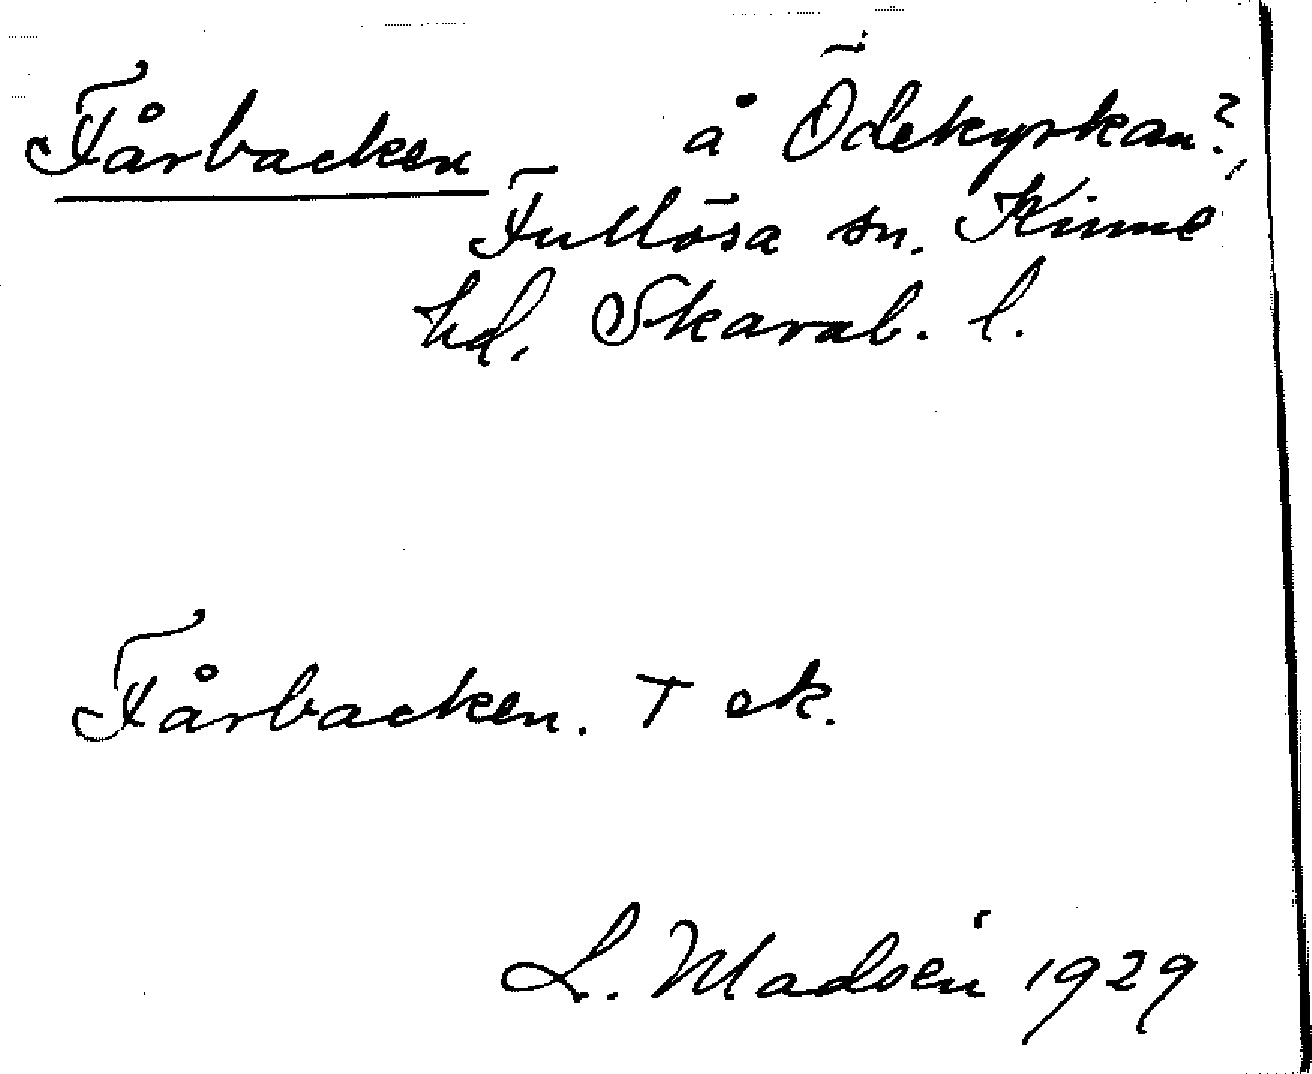 Fårbacken å Ödekyrkan?,
Fullösa sn. Kinne
hd. Skarab. l.
Fårbacken. T ek.
L. Madsén 1929